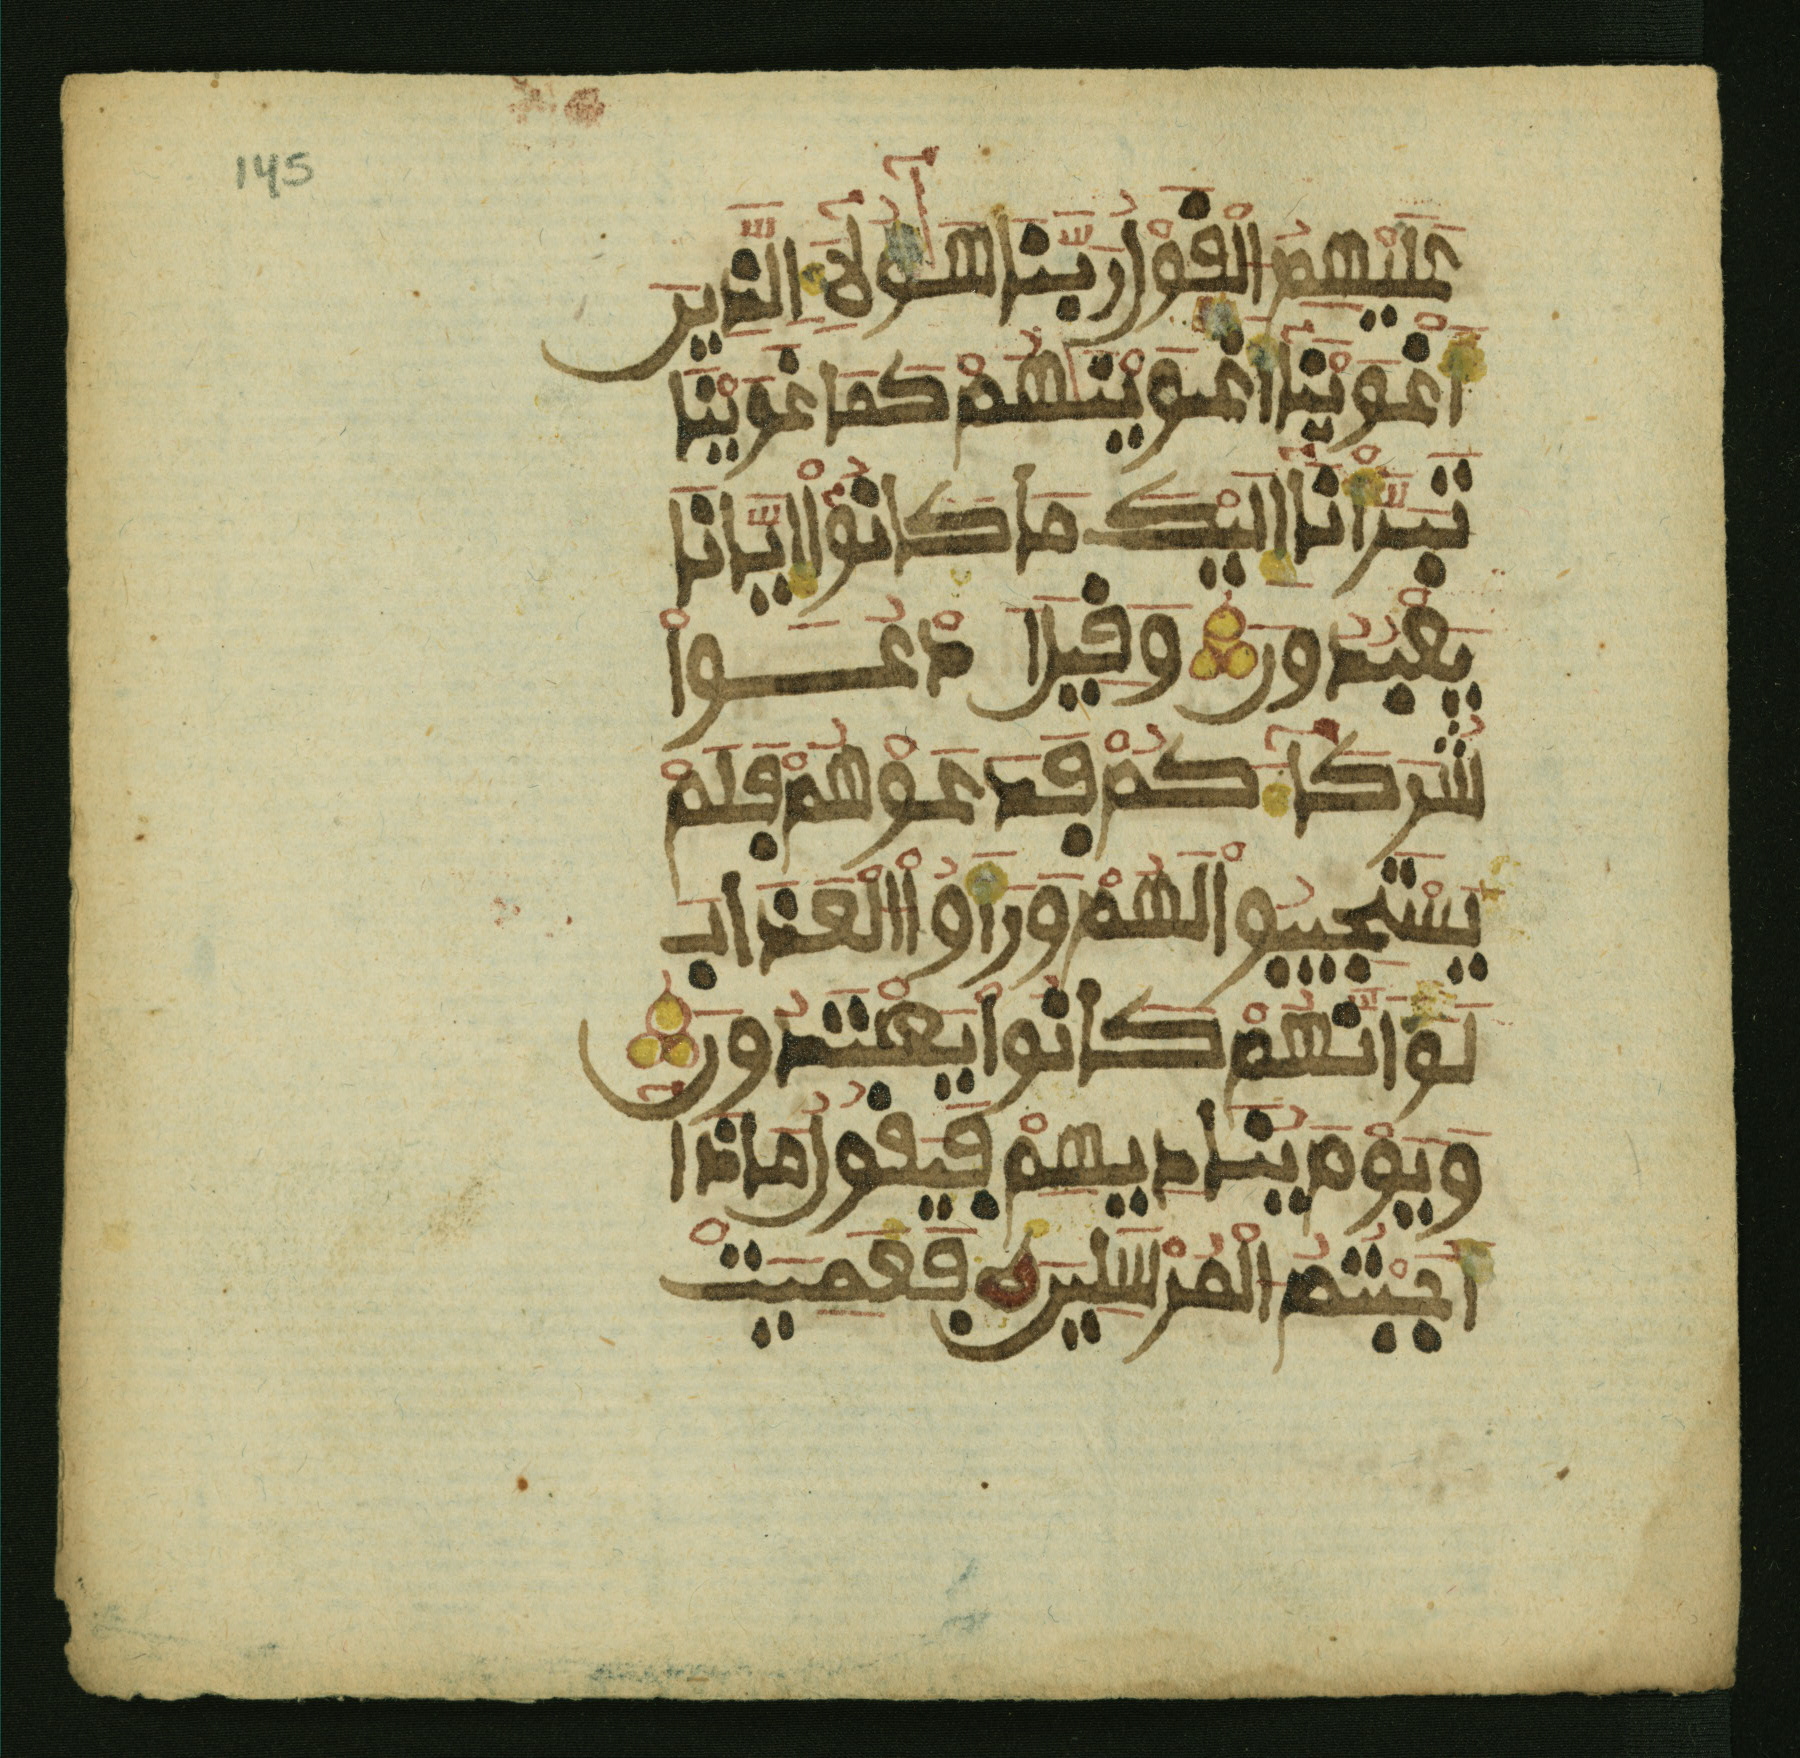 145
عَلَيْهِمُ الْقَوْلُ رَبَّنَا هَٰٓؤُلَآءِ الَّذِينَ
أَغْوَيْنَآ أَغْوَيْنَٰهُمْ كَمَا غَوَيْنَا
تَبَرَّأْنَآ إِلَيْكَ مَا كَانُوٓاْ إِيَّانَا
يَعْبُدُونَ وَقِيلَ ادْعُواْ
شُرَكَآءَكُمْ فَدَعَوْهُمْ فَلَمْ
يَسْتَجِيبُواْ لَهُمْ وَرَأَوُاْ الْعَذَابَ
لَوْ أَنَّهُمْ كَانُواْ يَهْتَدُونَ
وَيَوْمَ يُنَادِيهِمْ فَيَقُولُ مَاذَآ
أَجَبْتُمُ الْمُرْسَلِينَ فَعَمِيَتْ